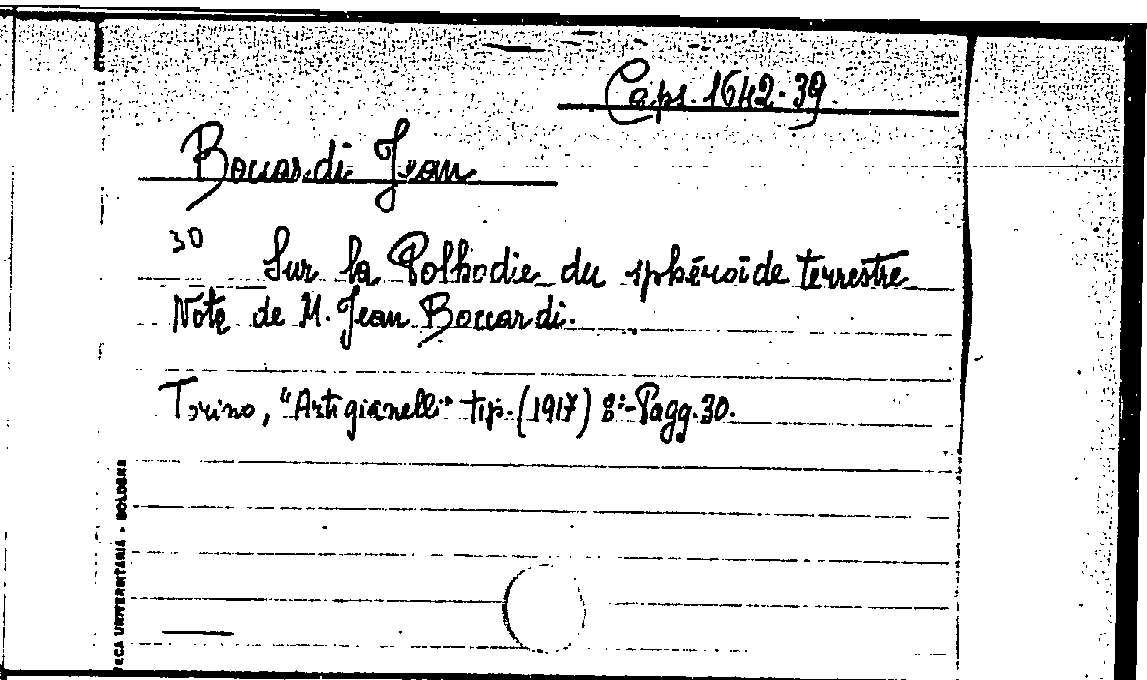 Caps. 1642-39
Boccardi Jean
30
Sur la Polhodie du sphéroïde terrestre
Note de M. Jean Boccardi.
Torino, "Artigianelli" tip. (1917) 8°-Pagg. 30.
TECA UNIVERSITARIA - BOLOGNA